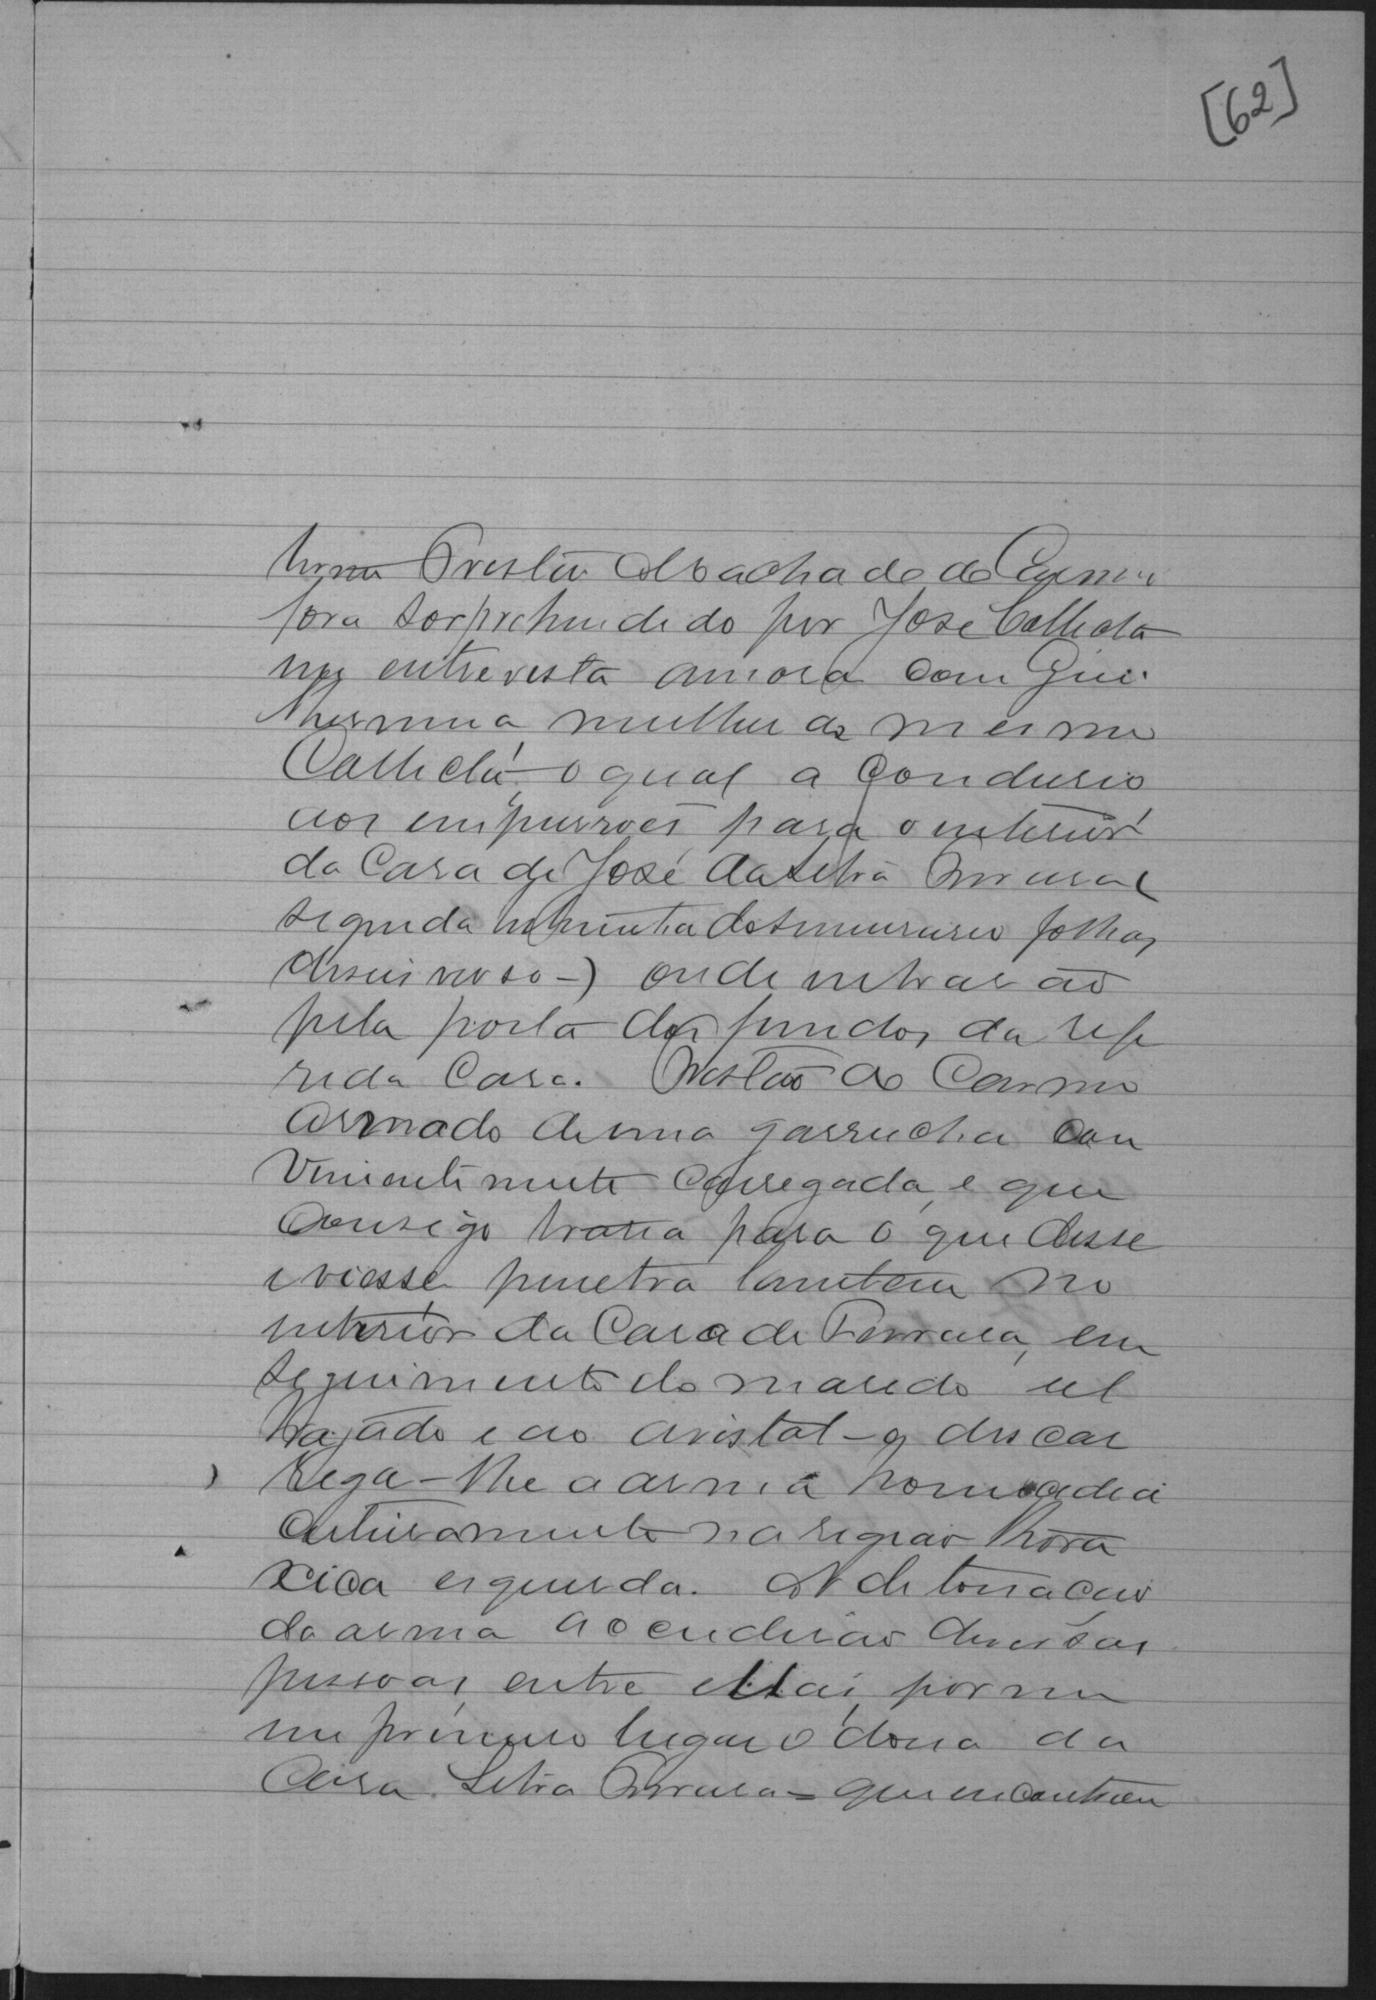 [62]
Tristão Machado do Carmo
fora sorprehendido por José Calheta
na entrevista amorosa com Gui
lhermina mulher do mesmo
Calheta, o qual a condusio
aos empurrões para o interior
da Casa de José da Silva
segunda folhas
deseis verso -) onde entrarão
pela porta dos fundos da refe
rida Casa. Tristão do Carmo
armado de uma garrucha con
venientemente carregada, e que
consigo trasia para o que desse
e viesse penetra tambem no
interior da Casa de Ferreira, em
seguimento do marido ul
trajado e ao avistal-o descar
rega-lhe a arma homicida
certeiramente na região thora
xica esquerda. A detonação
da arma accudirão diversas
pessoas, entre ellas, porem
em primeiro lugar o dono da
Casa Silva = que encontrou